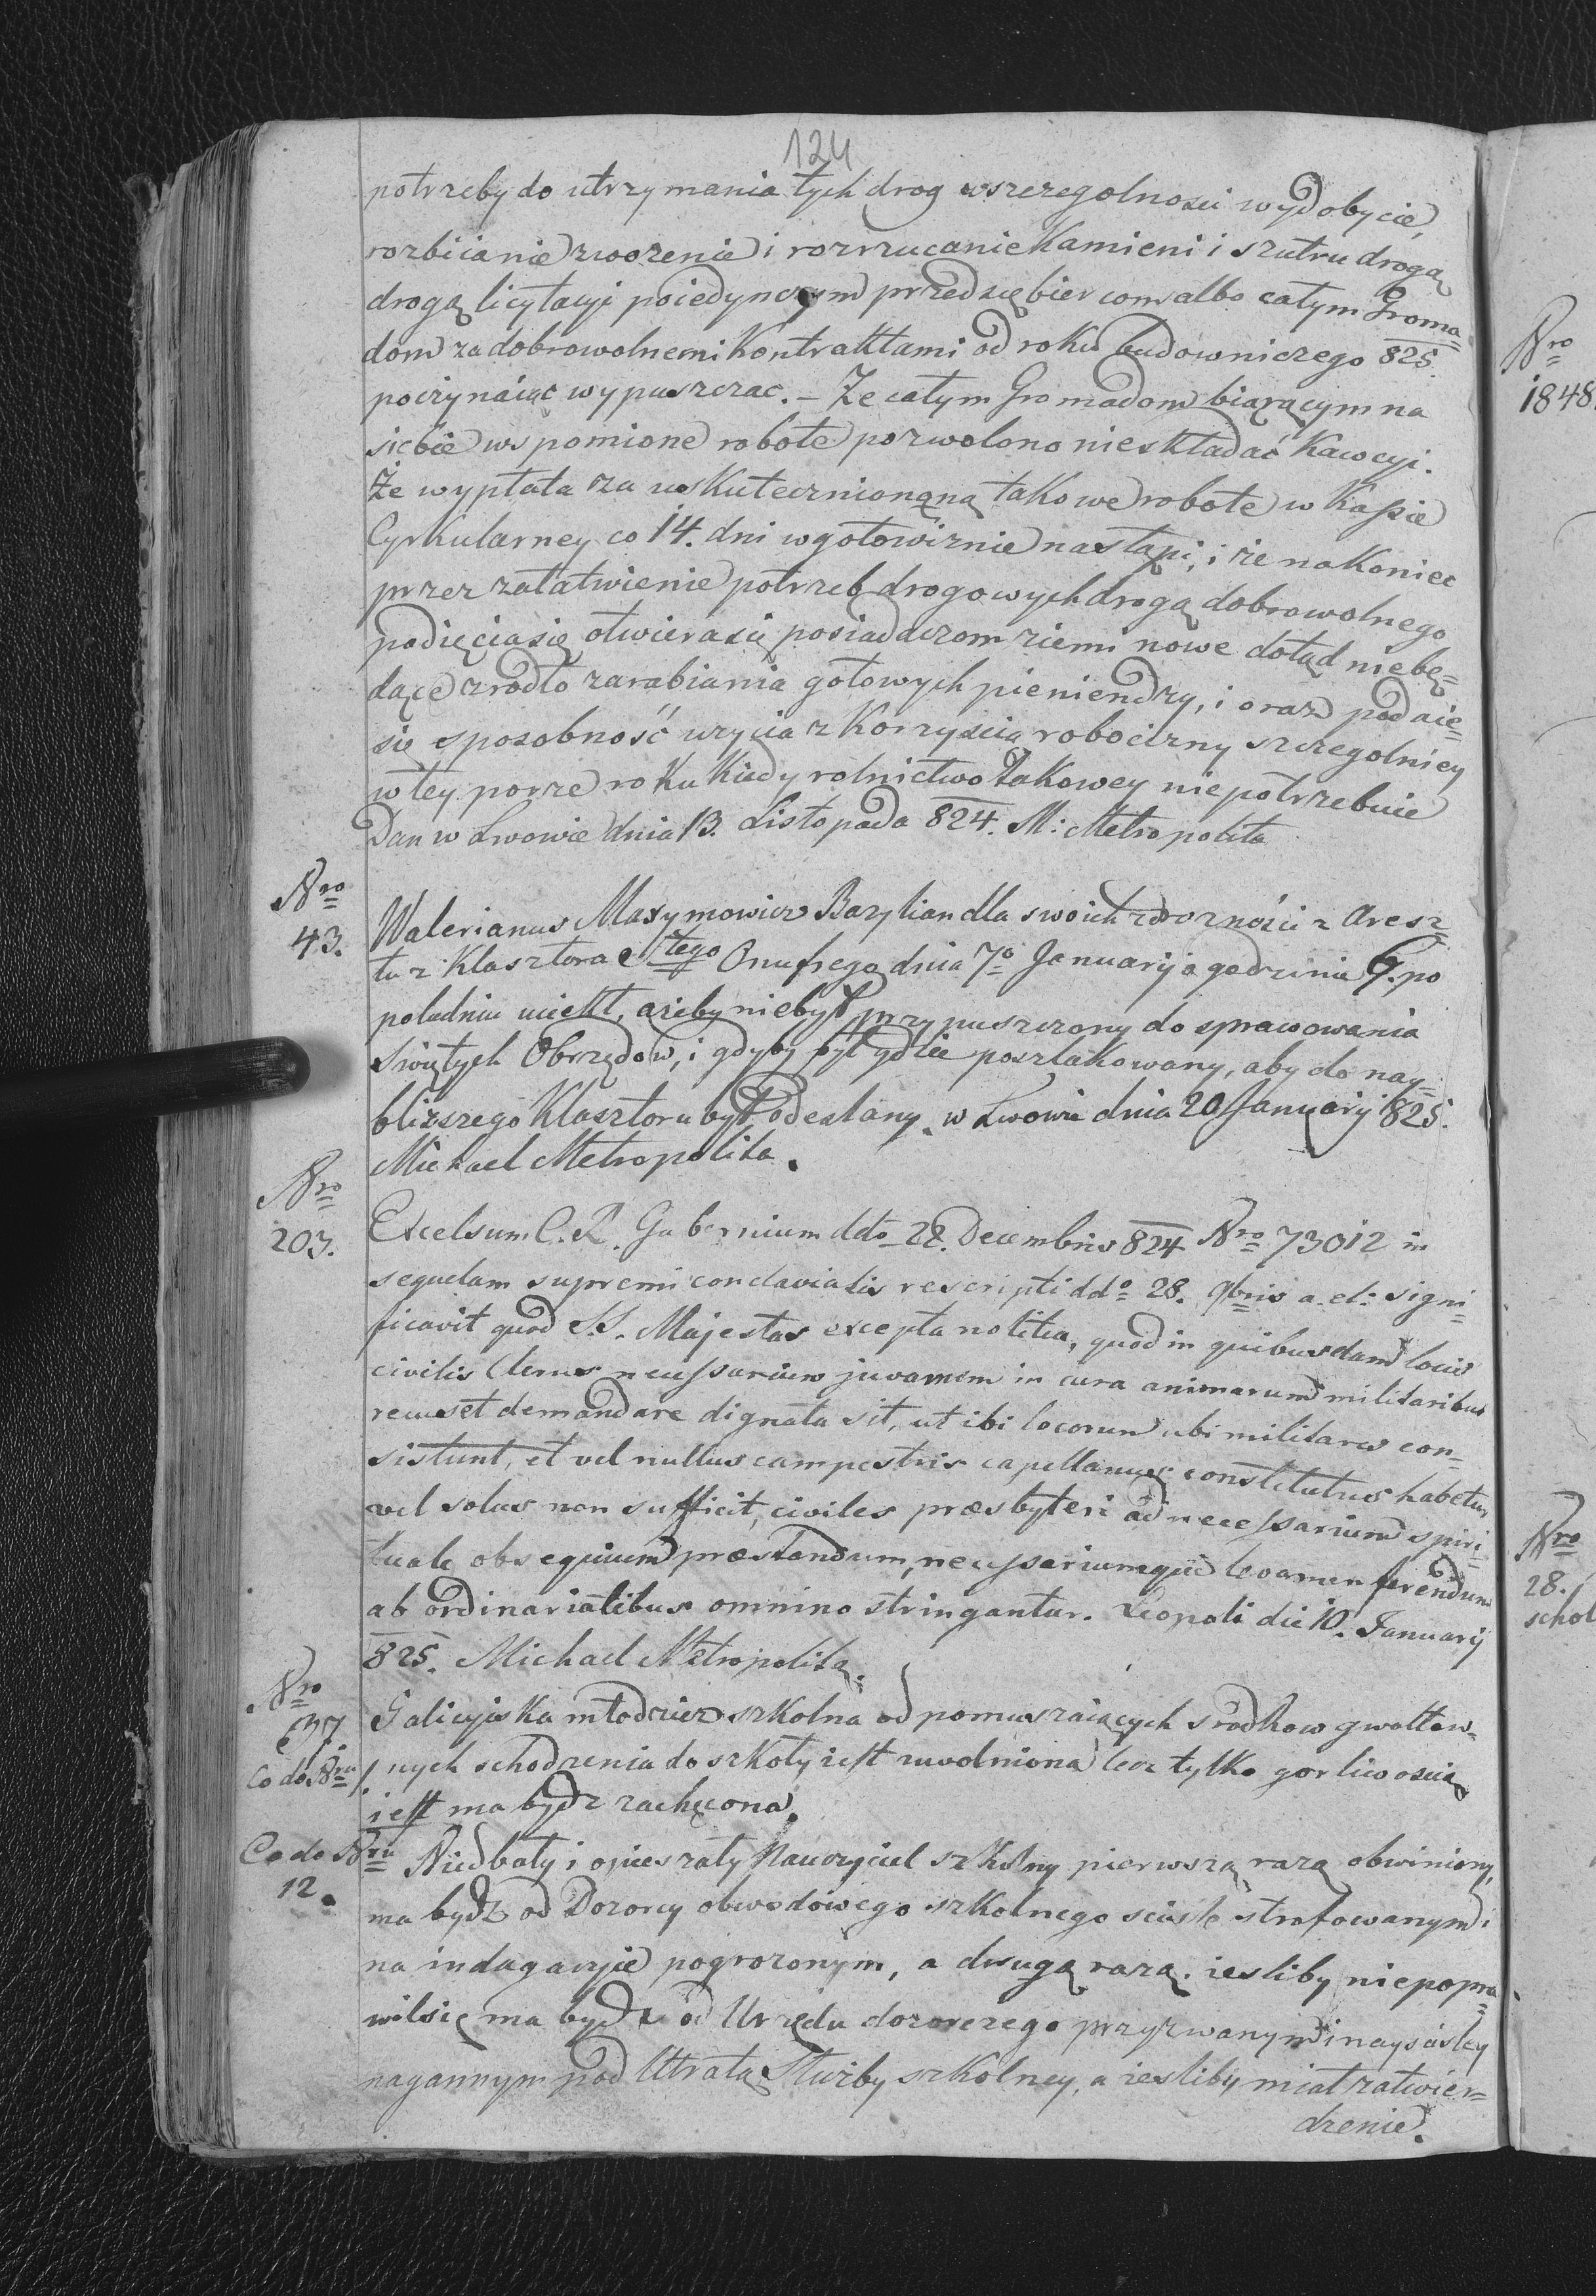 124
potrzeby do utrzymania tych drog wszczegolnosci wydobycie,
rozbiianie zwozenie i rozrzucanie Kamieni i szutru drogą
drogą licytacyi poiedynczym przedsiębiercom albo całym Groma=
dom za dobrowolnemi Kontraktami od roku budowniczego 825.
poczynaiąc wypuszczac. – Ze całym Gromadom biarącym na
siebie wspomione robote pozwolono nieskładać Kawcyi.
Że wypłata za uskutecznioną takowe robote w Kassie
Cyrkularney co 14. dni w gotowiznie nastąpi, i że nakoniec
przez załatwienie potrzeb drogowych drogą dobrowolnego
podięcia się otwiera się posiadaczom ziemi nowe dotąd niebę=
dące zrodło zarabiania gotowych pieniendzy, i oraz podaie=
się sposobność uzycia z Korzyscią robocizny szczegolniey
w tey porze roku Kiedy rolnictwo takowey niepotrzebuie
Dan w Lwowie dnia 13. Listopada 824. M: Metropolita
Nro
43.
Walerianus Maxymowicz Bazylian dla swoich zdroznosci z Aresz=
tu z Klasztora S tego Onufrego dnia 7o Januarij o godzinie 6. po
poludniu uciekł, azeby niebył przypuszczony do sprawowania
Swiętych Obrzędow, i gdyby był gdzie poszlakowany, aby do nay=
blizszego Klasztoru był odesłany. w Lwowie dnia 20 Januarij 825.
Michael Metropolita.
Nro
203.
Excelsum C. R. Gubernium ddto 28. Decembris 824 Nro 73012 in
sequelam supremi conclavialis rescripti ddo 28. 9bris a. el: signi=
ficavit quod S.S. Majestas excepta notitia, quod in quibusdam locis
civilis Clerus necessarium juvamen in cura animarum militaribus
recuset demandare dignata sit, ut ibi locorum ubi militares con=
sistunt, et vel nullus campestris capellanus constitutus habetur
vel solus non sufficit, civiles præsbyteri ad necessarium spiri=
tuale obsequium præstandum, necessariumque levamen ferendum
ab ordinariatibus omnino stringantur. Leopoli die 10. Januarij
825. Michael Metropolita.
Nro
137
Co do 8ru
Galicyiska młodziez szkolna od pomuszaiących srodkow gwałtow=
nych schodzenia do szkoły iest uwolniona lecz tylko gorliwoscią
iest ma bydz zachęcona.
Co do Nru
12.
Niedbały i opieszały Nauczyciel szkolny pierwszą razą obwiniony,
ma bydz od Dozorcy obwodowego szkolnego sciśle strofowanym i
na indagacyie pogrozonym, a drugą razą. iesliby niepopra=
wilsię ma bydz od Urzędu dozorczego przyzwanym i nayscisley
nagannym pod Utratą Służby szkolney, a iesliby miał zatwier=
dzenie.
Nro
1848.
Nro
28.
schol